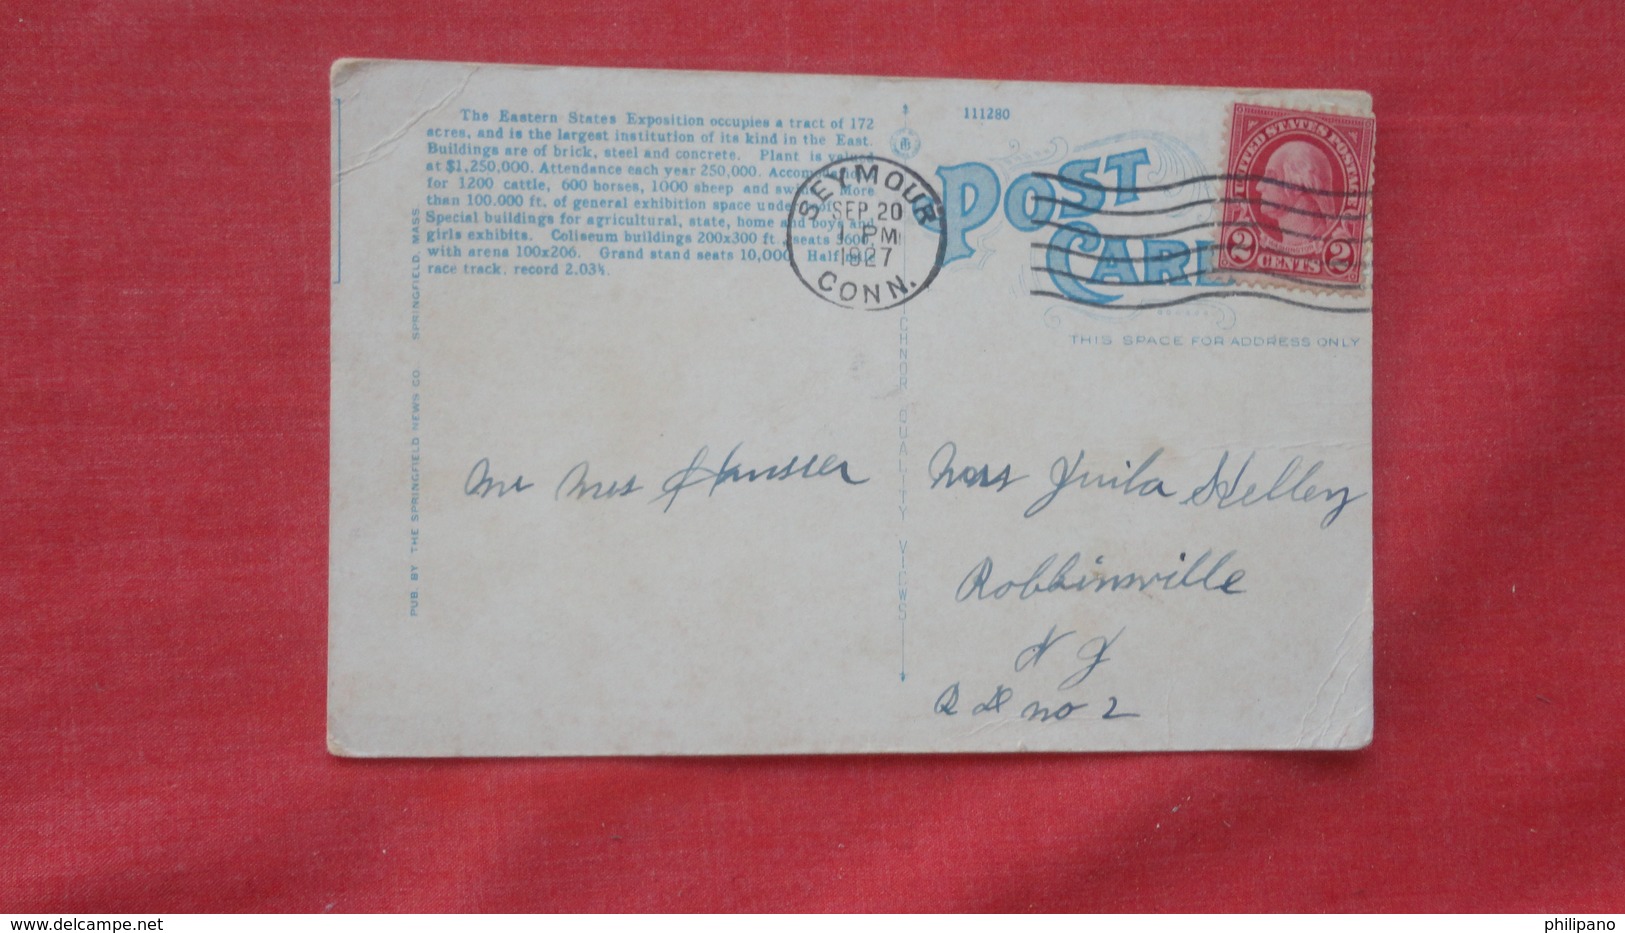 The Eastern States Exposition occupies a tract of 172
acres, and is the largest institution of its kind in the East.
Buildings are of brick, steel and concrete. Plant is valued
at $1,250,000. Attendance each year 250,000.
for 1200 cattle, 600 horses, 1000 sheep and swine. More
than 100.000 ft. of general exhibition space under
Special buildings for agricultural, state, home and boys and
girls exhibits. Coliseum buildings 200x300 ft., seats
with arena 100x206. Grand stand seats 10,000. Half
race track, record 2.03¾.
PUB. BY THE SPRINGFIELD NEWS CO. SPRINGFIELD, MASS.
SEYMOUR
SEP 20
1 PM
1927
CONN.
QUALITY VIEWS
111280
POST
CARD
UNITED STATES POSTAGE
WASHINGTON
2 CENTS 2
THIS SPACE FOR ADDRESS ONLY
Mr Mrs
Mrs
Robbinsville
N J
R D no 2
www.delcampe.net
philipano